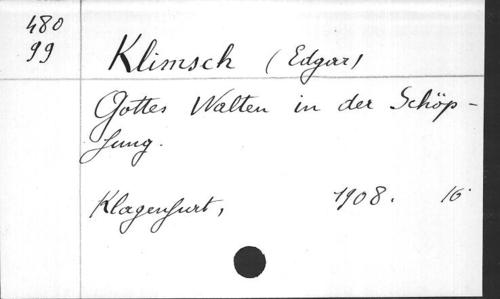 480
99
Klimsch (Edgar)
Gottes Walten in der Schöp-
fung.
Klagenfurt, 1908. 16°